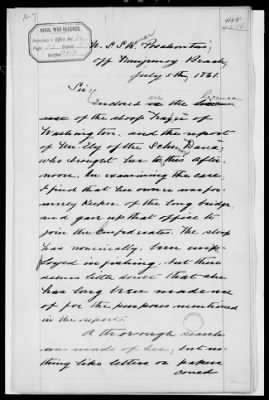 NAVAL WAR RECORDS
U. S. S. Pocahontas,
off Nanjemoy Reach,
July 5th, 1861.
Sir:
Enclosed are the license
of the sloop of
Washington, and the report
of the Schr Dana,
who brought her to this after-
noon. In examining the case,
I find that her owner was for-
merly keeper of the long bridge,
and gave up that office to
join the Confederates. The sloop
has nominally been em-
ployed in fishing, but there
seems little doubt that she
has long been made use
of for the purposes mentioned
in the report.
A thorough search
was made of her, but no-
thing like letters or papers
could